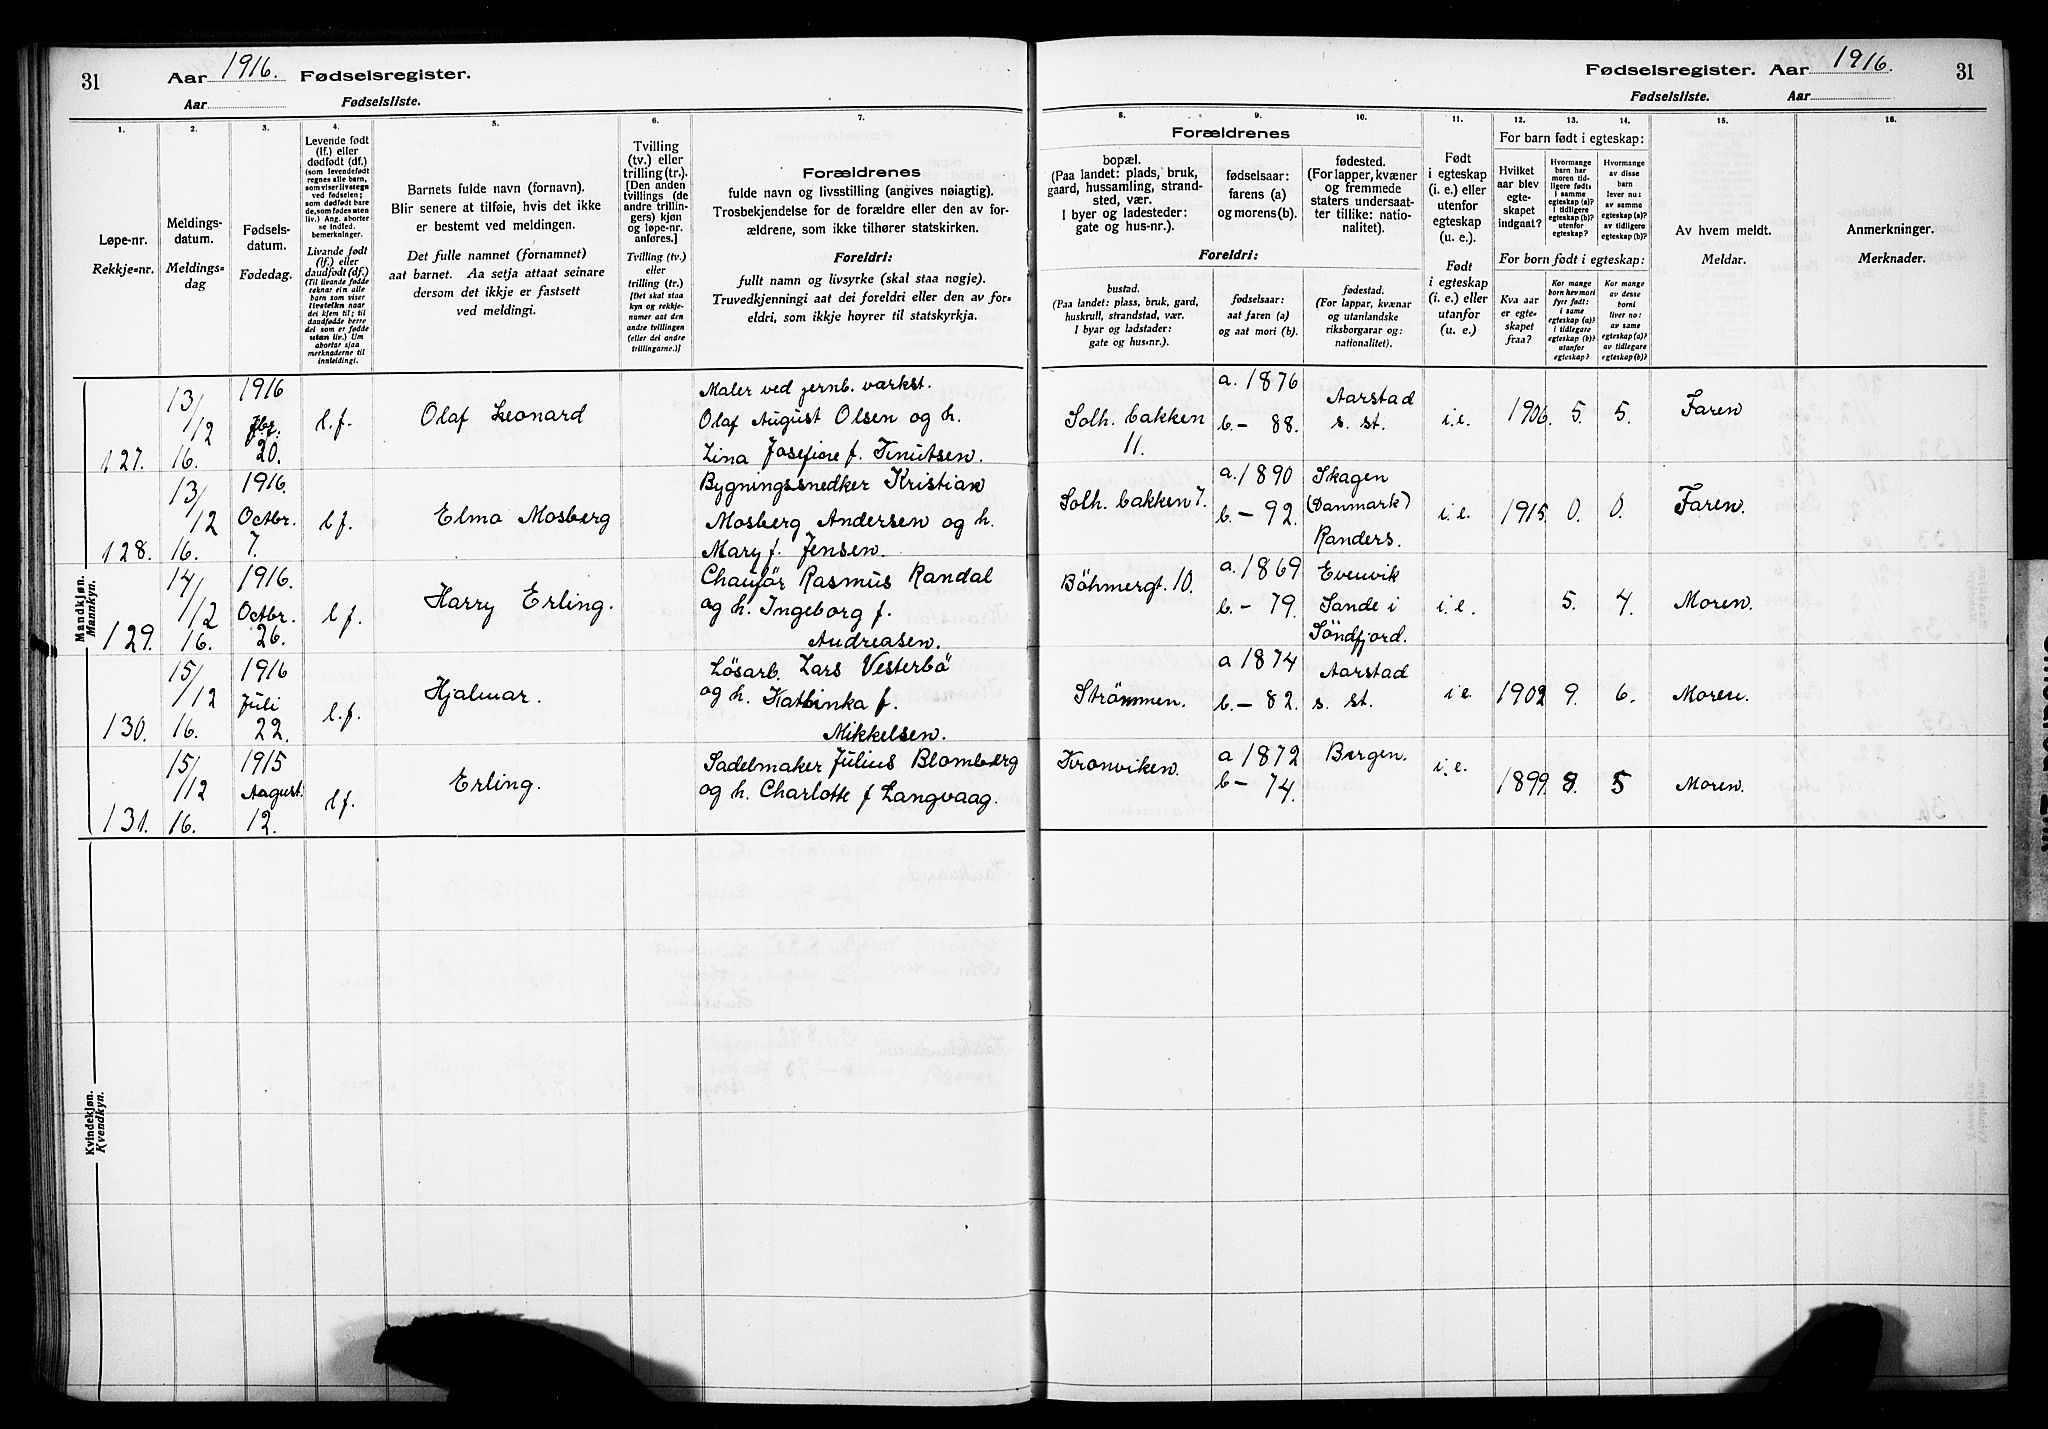 31
Aar 1916. Fødselsregister.
Aar Fødselsliste.
Fødselsregister. Aar 1916.
31
Fødselsliste. Aar
1. 2. 3. 4. 5. 6. 7.
Løpe-nr.
Rekkje-nr.
Meldings-
datum.
Meldings-
dag
Fødsels-
datum.
Fødedag.
Levende født
(lf.) eller
dødfødt (df.)
(som levendefødt
regnes alle barn,
som viser livstegn
ved fødselen;
som dødfødt bare
de, som fødes uten
liv.) Ang. aborter
se indled.
bemerkninger.
Livande født
(lf.) eller
daudfødt (df.)
(Til livande fødde
reknar ein alle
barn som viser
livsteikn naar
dei kjem til; til
daudfødde berre
dei som er fødde
utan liv.) Um
abortar sjaa
merknaderne til
innleidingi.
Barnets fulde navn (fornavn).
Blir senere at tilføie, hvis det ikke
er bestemt ved meldingen.
Det fulle namnet (fornamnet)
aat barnet. Aa setja attaat seinare
dersom det ikkje er fastsett
ved meldingi.
Tvilling
(tv.) eller
trilling(tr.).
[Den anden
tvillings (de
andre trillin-
gers) kjøn
og løpe-nr.
anføres.]
Tvilling (tv.)
eller
trilling (tr.)
[Det skal staa
kyn og rekkje-
numer aat den
andre tvillingen
(eller dei andre
trillingarne.)]
Forældrenes
fulde navn og livsstilling (angives nøiagtig).
Trosbekjendelse for de forældre eller den av for-
ældrene, som ikke tilhører statskirken.
Foreldri:
fullt namn og livsyrke (skal staa nøgje).
Truvedkjenningi aat dei foreldri eller den av for-
eldri, som ikkje høyrer til statskyrkja.
8. 9. 10. 11. 12. 13. 14. 15. 16.
Forældrenes
bopæl.
(Paa landet: plads, bruk,
gaard, hussamling, strand-
sted, vær.
I byer og ladesteder:
gate og hus-nr.).
fødselsaar:
farens (a)
og morens(b).
fødested.
(For lapper, kvæner
og fremmede
staters undersaat-
ter tillike: natio-
nalitet).
Foreldri:
bustad.
(Paa landet: plass, bruk, gard,
huskrull, strandstad, vær.
I byar og ladstader:
gate og hus-nr.).
fødselsaar:
aat faren (a)
og aat mori (b).
fødestad.
(For lappar, kvænar
og utanlandske
riksborgarar og:
nationalitet).
Født
i egteskap
(i. e.) eller
utenfor
egteskap
(u. e.).
Født
i egteskap
(i. e.) eller
utanfor
(u. e.).
For barn født i egteskap:
Hvilket
aar blev
egte-
skapet
indgaat?
Hvormange
barn har
moren tid-
ligere født:
i samme
egteskap (a)?
i tidligere
egteskap (b)?
utenfor
egteskap?
Hvormange
av disse
barn
lever nu:
av samme
egteskap (a)?
av tidligere
egteskap (b)?
For born født i egteskap:
Kva aar
er egte-
skapet
fraa?
Kor mange
born hev mori
fyrr født:
i same
egteskap (a)?
i tidlegare
egteskap (b)?
utanfor
egteskap?
Kor mange
av desse
borni
liver no:
av same
egteskap (a)?
av tidlegare
egteskap (b)?
Av hvem meldt.
Meldar.
Anmerkninger.
Merknader.
Mandkjøn.
Mannkyn.
127. 13/12 16. 1916 Fbr. 20. l.f. Olaf Leonard
Maler ved jernb. værkst.
Olaf August Olsen og h.
Lina Josefine f. Knutsen.
Solh. bakken 11. a. 1876 b.– 88. Aarstad s. st. i.e. 1906. 5. 5. Faren
128. 13/12 16. 1916. Octbr. 7. l.f. Elmo Mosberg
Bygningssnedker Kristian
Mosberg Andersen og h.
Mary f. Jensen.
Solh. bakken 7. a. 1890 b.– 92. Skagen (Danmark) Randers. i.e. 1915. 0. 0. Faren.
129. 14/12 16. 1916. Octbr. 26. l.f. Harry Erling.
Chaufør Rasmus Randal
og h. Ingeborg f.
Andreasen.
Böhmergt. 10. a. 1869 b.– 79. Evenvik Sande i Söndfjord. i.e. 5. 4. Moren.
130. 15/12 16. 1916 Juli 22. l.f. Hjalmar.
Løsarb. Lars Vesterbö
og h. Kathinka f.
Mikkelsen.
Strömmen. a 1874 b.– 82. Aarstad s. st. i e. 1902 9. 6. Moren.
131. 15/12 16. 1915 August. 12. l.f. Erling.
Sadelmaker Julius Blomberg
og h. Charlotte f Langvaag.
Kronviken. a 1872 b– 74. Bergen. i.e. 1899. 8. 5 Moren.
Kvindekjøn.
Kvendkyn.